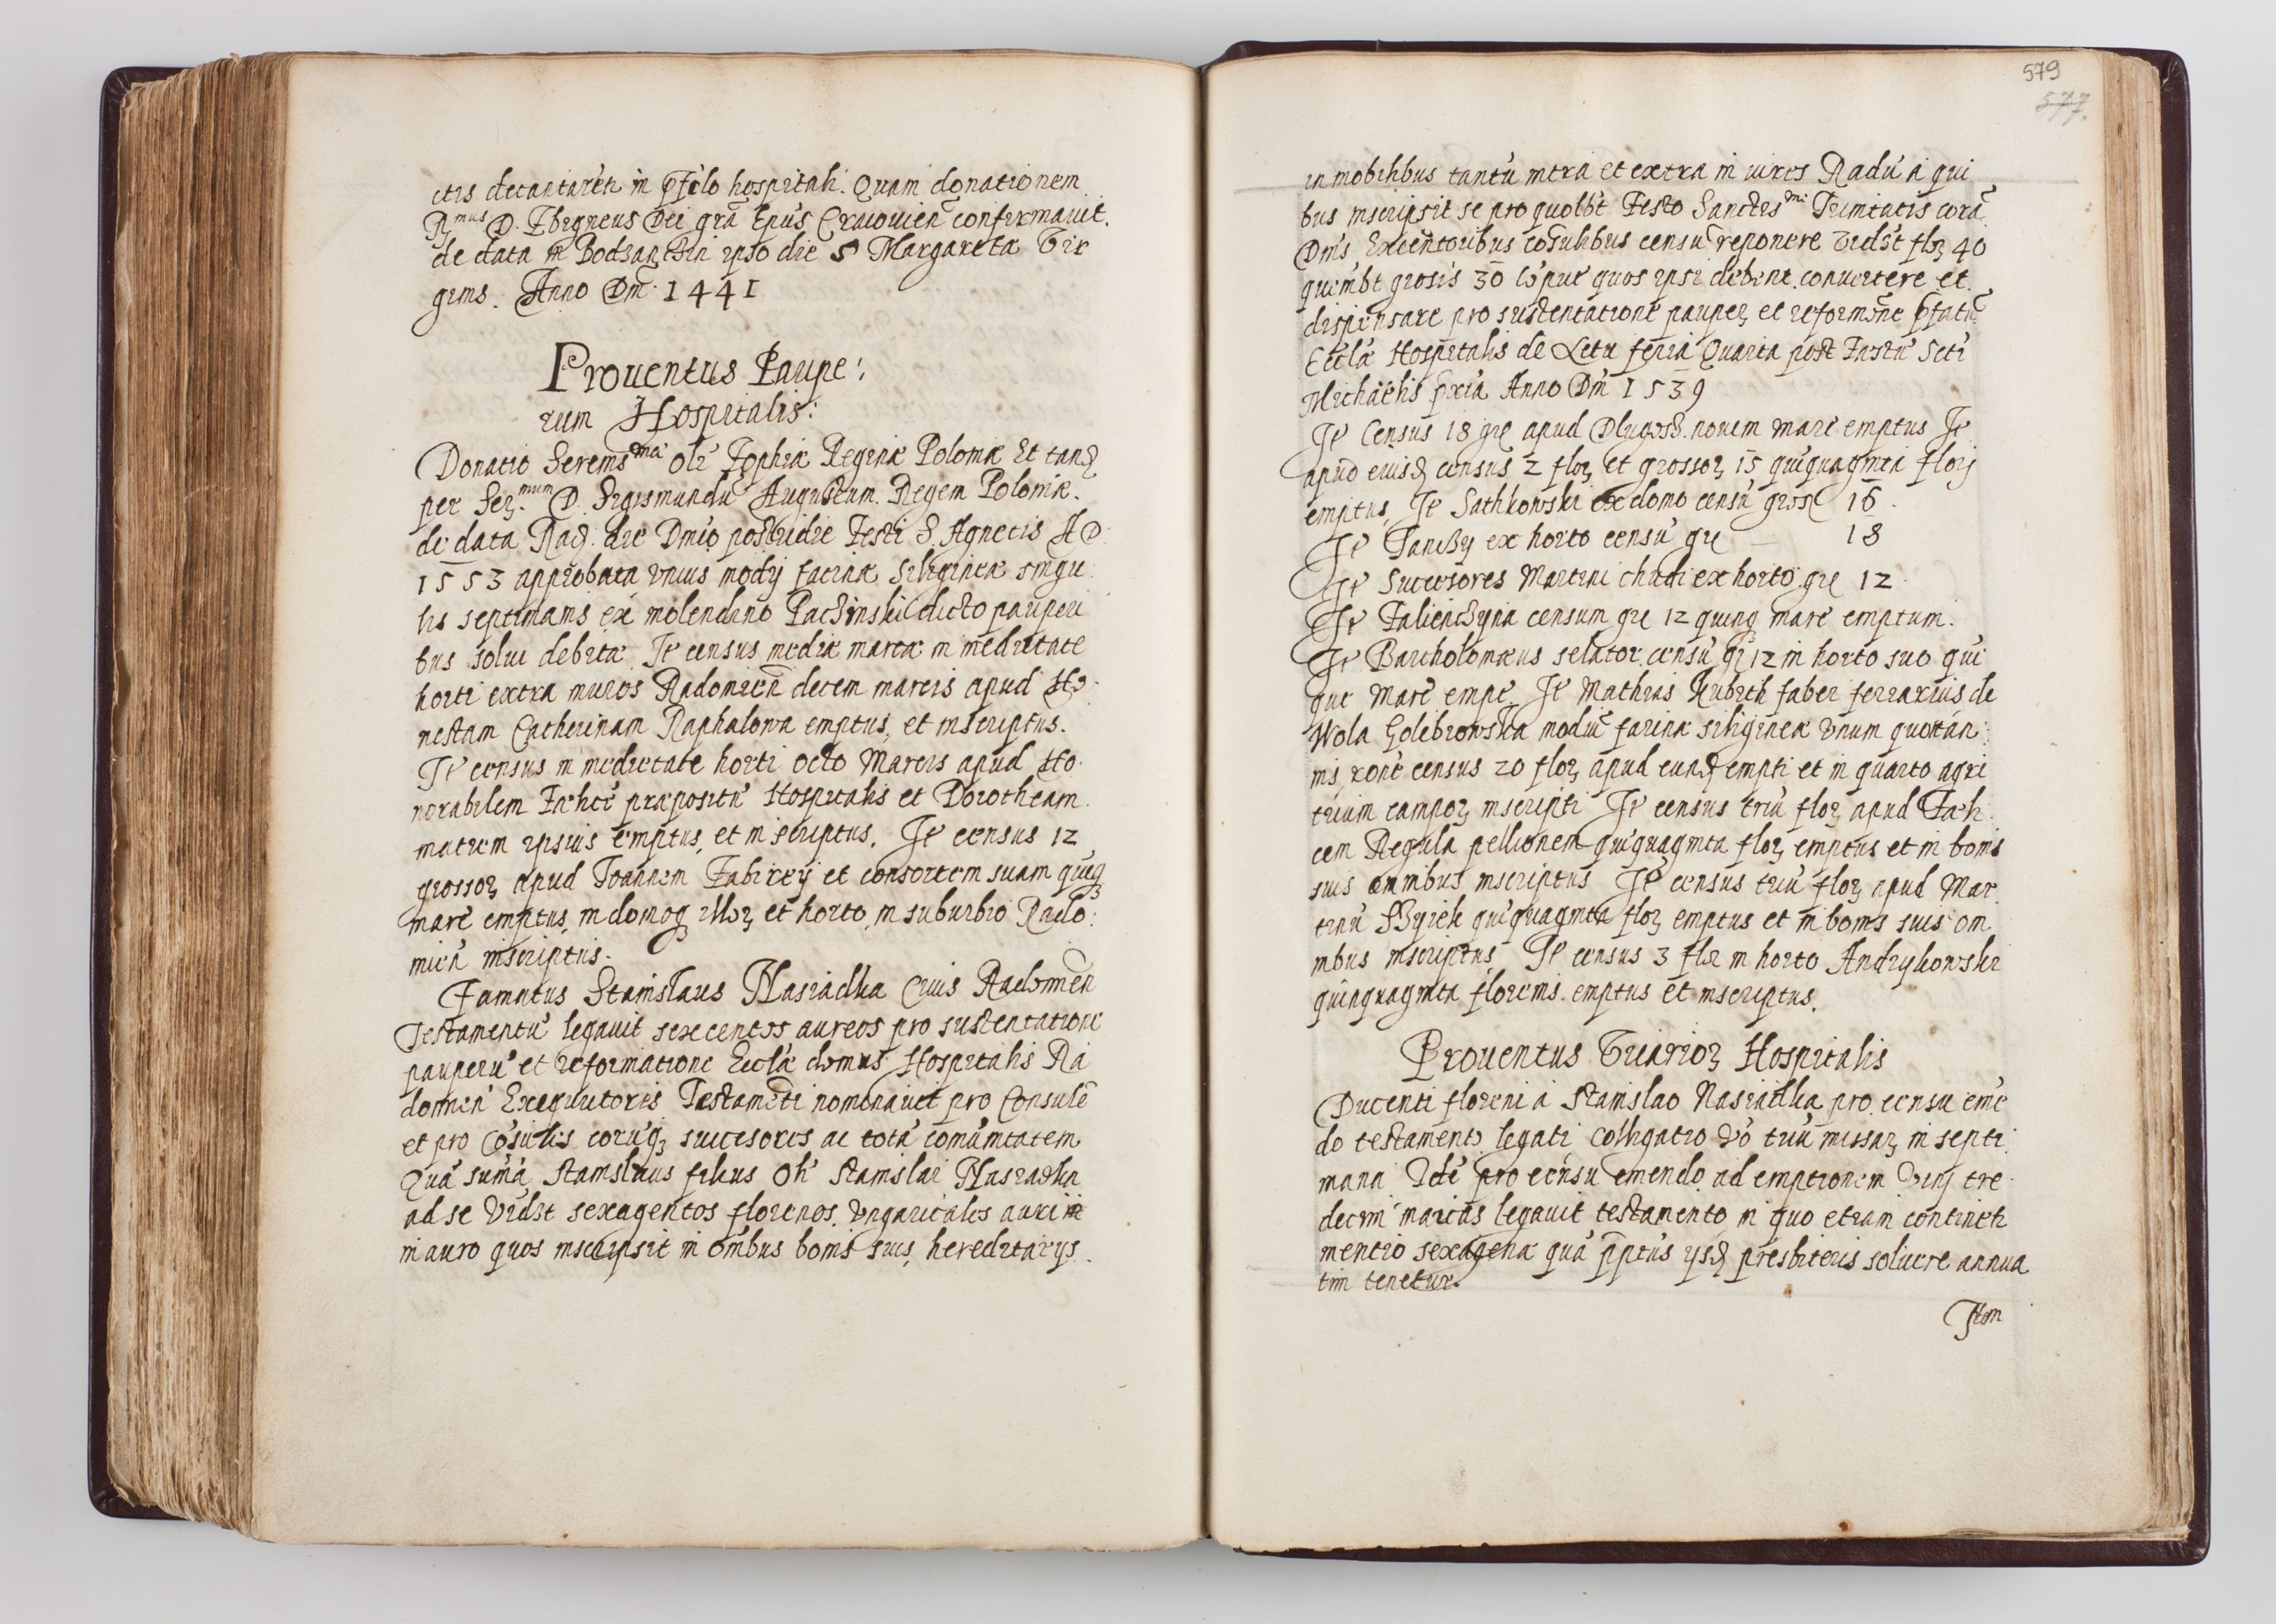 ctis decantaret in Pſalo hospitali. Quam donationem
R.mus D. Zbigneus Dei gra Epus Cracovien confirmavit.
de data in Bodzantzin ipso die S Margareta Vir
ginis. Anno Dni 1441
Proventus Paupe:
rum Hospitalis:
Donatio Serenissma oli Zophia Regina Polonia Et tand
per Ser.mum D. Sigismundu Augustum Regem Polonia.
de data Rad. die Dnico postridie Festi S. Agnetis A D
1553 approbata unius modij farina Siliginea singu
lis septimanis ex molendino Paczinski dicto pauperi
bus solui debita. It census media marca in medietate
horti extra muros Radomien decem marcis apud Ho
nestam Catherinam Raphalowa emptus, et inscriptus.
It census in medietate horti octo Marcis apud Ho
norabilem praposit Hospitalis et Dorotheam
matrem ipsius emptus, et inscriptus. It census 12
grossor apud Joannem Fabirkij et consortem suam quinq
marc emptus, in domoq illor et horto, in suburbio Rado:
mien inscriptus.
Famatus Stanislaus Nasiadka Civis Radomien
Testamentu legavit sexcentos aureos pro sustentatione
pauperu et reformatione Eccla domus Hospitalis Ra
domien Exequutores Testameti nominavit pro Consule
et pro Cosules coruq, succesores ac tota comunitatem
Qua suma Stanislaus filius Oli Stanislai Nasiadka
ad se vidzt sexagentos florenos ungaricales auri in
in auro quos inscripsit in omibus bonis suis, hereditarys.
579
577.
in mobilibus tantu intra et extra muros Radu a qui
bus inscripsit se pro quolibt Festo Sanctissmi Trinitatis cora
Dnis Executoribus cosulibus censu reponere vidzt flor 40
queml bt grosis 30 coput quos ipsi debent convertere et
dispensare pro sustentatione pauper et reformone pfata
Eccla Hospitalis de Actu feria Quarta post Festu Scti
Michaelis pxia Anno Dni 1539
It Census 18 gre apud Dlugosz novem marc emptus It
apud eiusd census 2 flor et grossor 15 quiquaginta flory
emptus It Sathkowski ex domo censu gross 16.
It Janczy ex horto censu gre 18
It Succesores Martini chudi ex horto gre 12
It Falienczyna censum gre 12 quinq marc emptum.
It Bartholomaeus selator censu gr 12 in horto suo qui
que marc empt. It Mathias Kubith faber ferrarius de
Wola Golebiowska modiu farina siliginea unum quotan:
nis rone census 20 flor apud eund empti et in quarto agri
trium campor inscripti It census triu flor apud Fah
cem Regula pellionem quiquaginta flor emptus et in bonis
suis omnibus inscriptus It census triu flor apud Mar
tinu quiquaginta flor emptus et in bonis suis om
nibus inscriptus It census 3 flor in horto Andrykowski
quinquaginta florenis emptus et inscriptus.
Proventus Vicarior Hospitalis
Ducenti floreni a Stanislao Nasiadka pro censu eme
do testamento legati colligatio vo triu missar in septi
mana Ide pro censu emendo ad emptionem vini tre
decim marcas legavit testamento in quo etiam contineti
mentio sexagena qua pptus ysd presbiteris soluere annua
tim tenetur.
Item